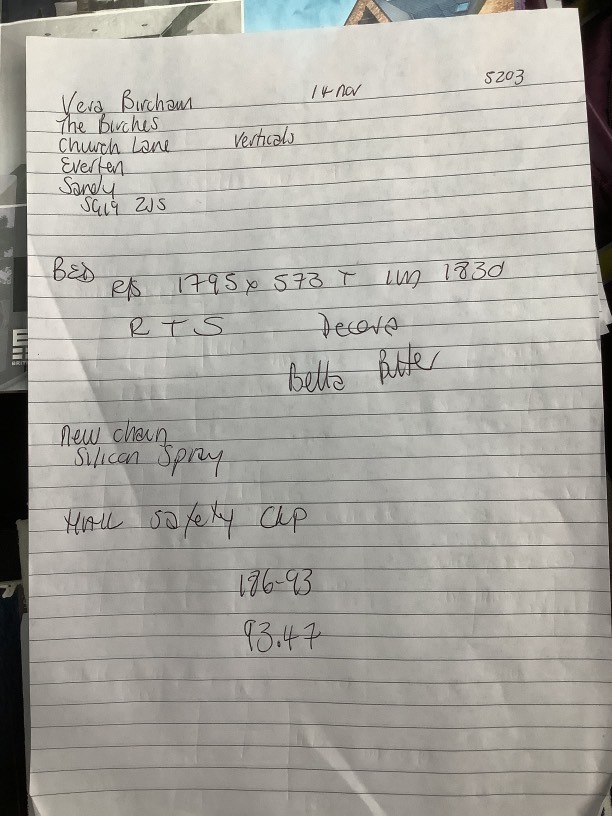 14 nov 5203
Vera Bircham
The Birches
Church Lane Verticals
Everten
Sandy
SG19 2JS
BED R/S 1795 x 573 T 1830
R T S Decora
Bella Butter
New chain
Silicon Spray
HALL Safety Clip
186-93
93.47